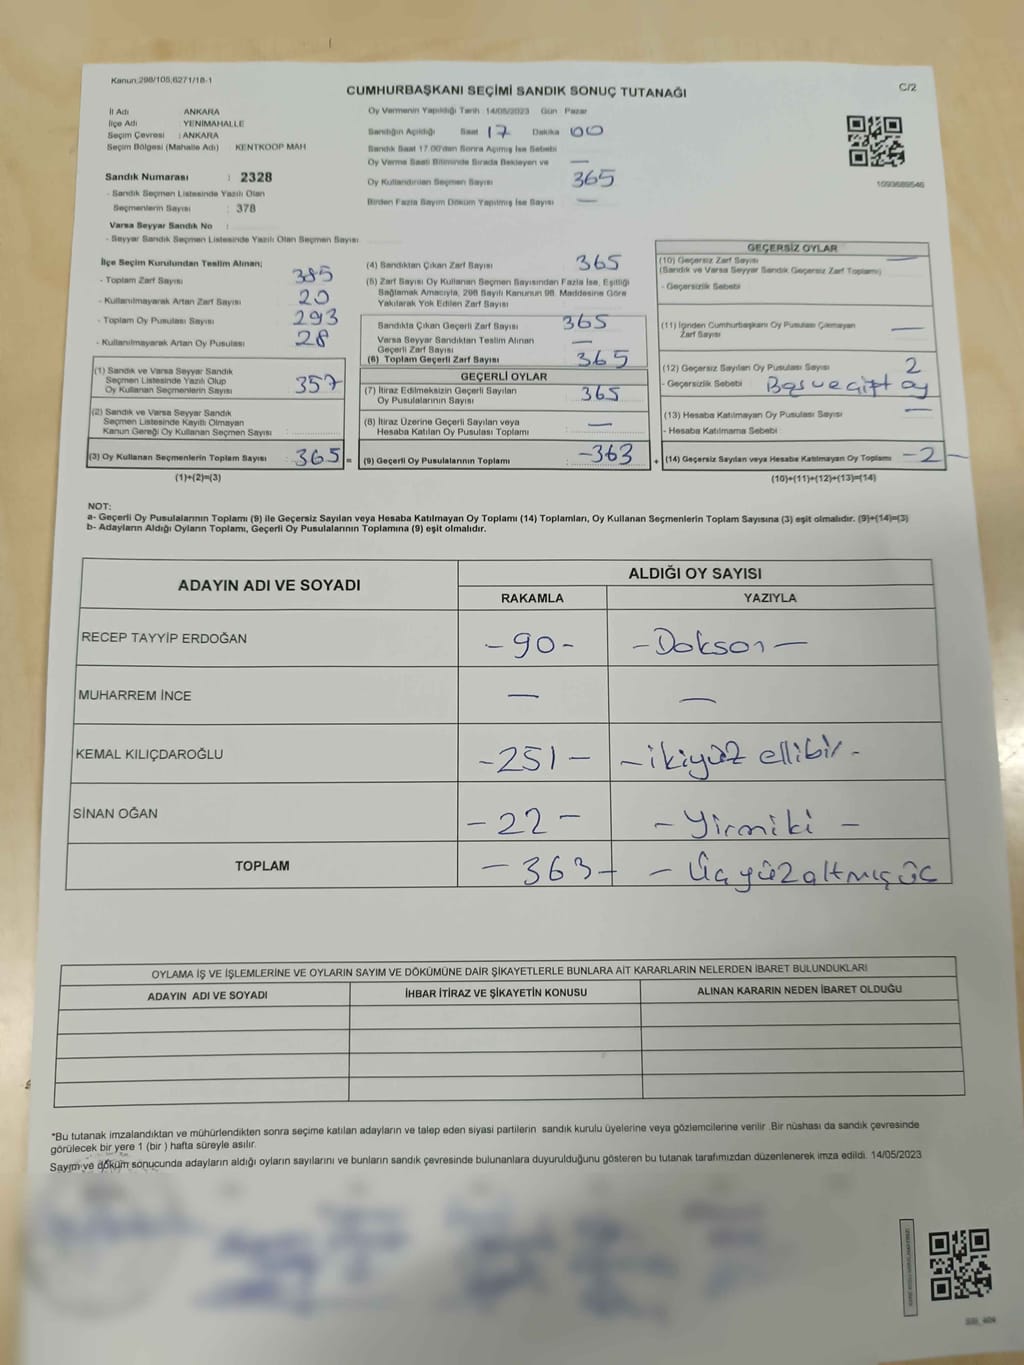 Kanun:298/105,6271/18-1
C/2
CUMHURBAŞKANI SEÇİMİ SANDIK SONUÇ TUTANAĞI
İl Adı ANKARA
İlçe Adı : YENİMAHALLE
Seçim Çevresi : ANKARA
Seçim Bölgesi (Mahalle Adı) : KENTKOOP MAH
Sandık Numarası : 2328
- Sandık Seçmen Listesinde Yazılı Olan
Seçmenlerin Sayısı : 378
Varsa Seyyar Sandık No :
- Seyyar Sandık Seçmen Listesinde Yazılı Olan Seçmen Sayısı
Oy Vermenin Yapıldığı Tarih 14/05/2023 Gün Pazar
Sandığın Açıldığı Saat 17 Dakika 00
Sandık Saat 17.00'dan Sonra Açılmış İse Sebebi
Oy Verme Saati Bitiminde Sırada Bekleyen ve —
Oy Kullandırılan Seçmen Sayısı 365
Birden Fazla Sayım Döküm Yapılmış İse Sayısı —
1093689546
İlçe Seçim Kurulundan Teslim Alınan;
- Toplam Zarf Sayısı : 385
- Kullanılmayarak Artan Zarf Sayısı : 20
- Toplam Oy Pusulası Sayısı : 293
- Kullanılmayarak Artan Oy Pusulası : 28
(1) Sandık ve Varsa Seyyar Sandık
Seçmen Listesinde Yazılı Olup
Oy Kullanan Seçmenlerin Sayısı : 357
(2) Sandık ve Varsa Seyyar Sandık
Seçmen Listesinde Kayıtlı Olmayan
Kanun Gereği Oy Kullanan Seçmen Sayısı :
(3) Oy Kullanan Seçmenlerin Toplam Sayısı : 365 =
(1)+(2)=(3)
(4) Sandıktan Çıkan Zarf Sayısı 365
(5) Zarf Sayısı Oy Kullanan Seçmen Sayısından Fazla İse, Eşitliği
Sağlamak Amacıyla, 298 Sayılı Kanunun 98. Maddesine Göre
Yakılarak Yok Edilen Zarf Sayısı
Sandıkta Çıkan Geçerli Zarf Sayısı 365
Varsa Seyyar Sandıktan Teslim Alınan
Geçerli Zarf Sayısı —
(6) Toplam Geçerli Zarf Sayısı 365
GEÇERLİ OYLAR
(7) İtiraz Edilmeksizin Geçerli Sayılan
Oy Pusulalarının Sayısı : 365
(8) İtiraz Üzerine Geçerli Sayılan veya
Hesaba Katılan Oy Pusulası Toplamı : —
(9) Geçerli Oy Pusulalarının Toplamı : -363 +
GEÇERSİZ OYLAR
(10) Geçersiz Zarf Sayısı —
(Sandık ve Varsa Seyyar Sandık Geçersiz Zarf Toplamı)
- Geçersizlik Sebebi
(11) İçinden Cumhurbaşkanı Oy Pusulası Çıkmayan
Zarf Sayısı —
(12) Geçersiz Sayılan Oy Pusulası Sayısı 2
- Geçersizlik Sebebi : Boş ve çift oy
(13) Hesaba Katılmayan Oy Pusulası Sayısı —
- Hesaba Katılmama Sebebi
(14) Geçersiz Sayılan veya Hesaba Katılmayan Oy Toplamı - 2 -
(10)+(11)+(12)+(13)=(14)
NOT:
a- Geçerli Oy Pusulalarının Toplamı (9) ile Geçersiz Sayılan veya Hesaba Katılmayan Oy Toplamı (14) Toplamları, Oy Kullanan Seçmenlerin Toplam Sayısına (3) eşit olmalıdır. (9)+(14)=(3)
b- Adayların Aldığı Oyların Toplamı, Geçerli Oy Pusulalarının Toplamına (9) eşit olmalıdır.
ADAYIN ADI VE SOYADI
ALDIĞI OY SAYISI
RAKAMLA YAZIYLA
RECEP TAYYİP ERDOĞAN - 90 - - Doksan -
MUHARREM İNCE — —
KEMAL KILIÇDAROĞLU - 251 - - ikiyüz ellibir -
SİNAN OĞAN - 22 - - Yirmiki -
TOPLAM - 363 - - Üçyüzaltmışüç
OYLAMA İŞ VE İŞLEMLERİNE VE OYLARIN SAYIM VE DÖKÜMÜNE DAİR ŞİKAYETLERLE BUNLARA AİT KARARLARIN NELERDEN İBARET BULUNDUKLARI
ADAYIN ADI VE SOYADI İHBAR İTİRAZ VE ŞİKAYETİN KONUSU ALINAN KARARIN NEDEN İBARET OLDUĞU
*Bu tutanak imzalandıktan ve mühürlendikten sonra seçime katılan adayların ve talep eden siyasi partilerin sandık kurulu üyelerine veya gözlemcilerine verilir. Bir nüshası da sandık çevresinde
görülecek bir yere 1 (bir) hafta süreyle asılır.
Sayım ve döküm sonucunda adayların aldığı oyların sayılarını ve bunların sandık çevresinde bulunanlara duyurulduğunu gösteren bu tutanak tarafımızdan düzenlenerek imza edildi. 14/05/2023